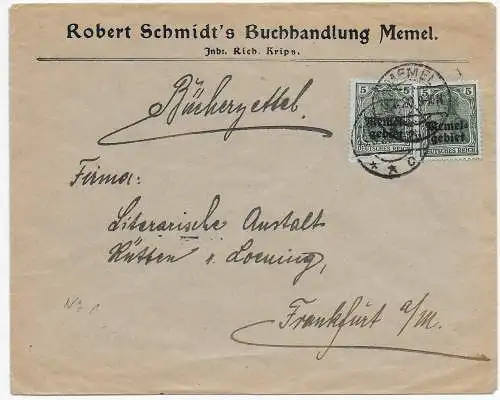 Robert Schmidt's Buchhandlung Memel.
Inh: Rich. Krips.
5 5 5 5
Memel-
gebiet
Memel-
gebiet
DEUTSCHES REICH
DEUTSCHES REICH
MEMEL
* * c
Bücherzettel.
Firma:
Literarische Anstalt
Rütten & Loening,
Frankfurt a/M.